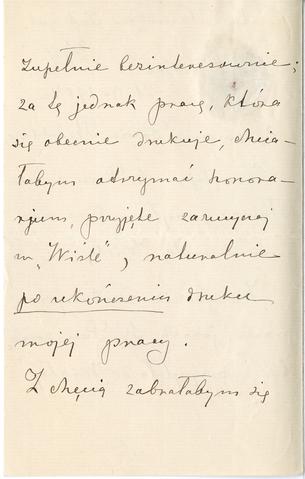 zupełnie bezinteresownie;
za tę jednak pracę, która
się obecnie drukuje, chcia-
łabym otrzymać honora-
rjum, przyjęte zazwyczaj
w „Wiśle", naturalnie
po ukończeniu druku
mojej pracy.
Z chęcią zabrałabym się